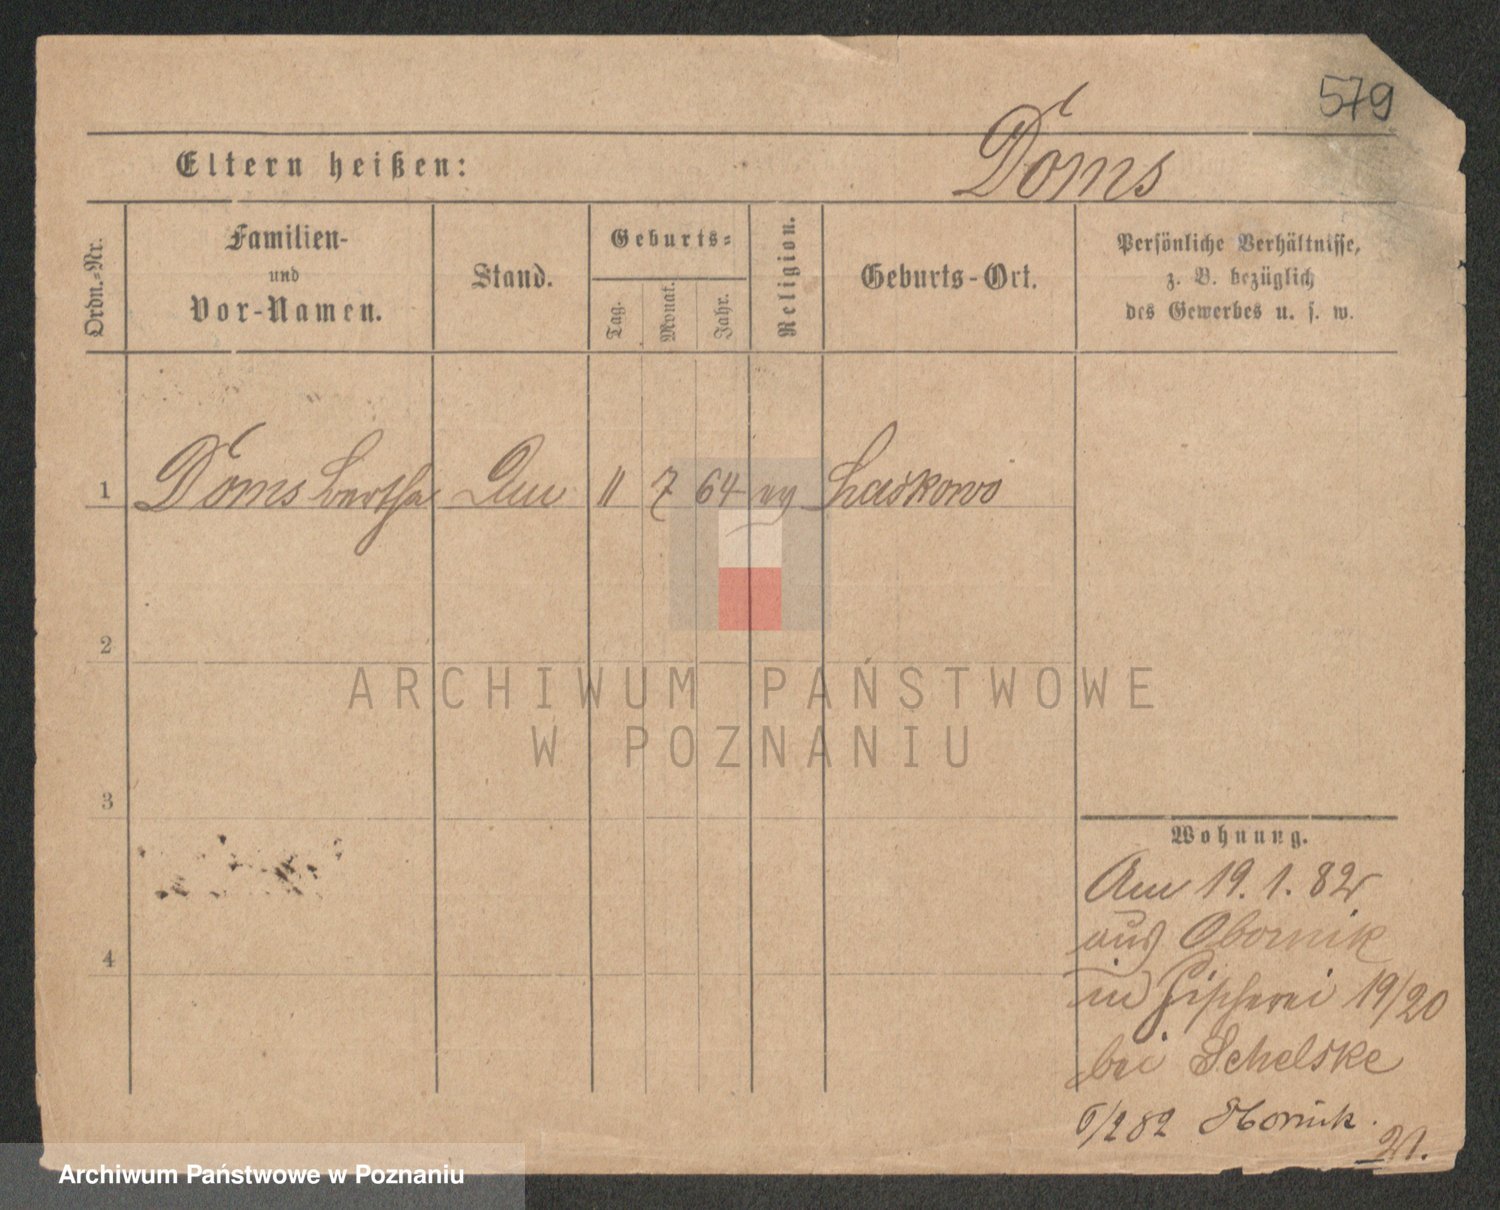 579
Döms
Eltern heißen:
Ordn.-Nr.
Familien-
und
Vor-Namen.
Stand.
Geburts-
Tag.
Monat.
Jahr.
Religion.
Geburts-Ort.
Persönliche Verhältnisse,
z. B. bezüglich
des Gewerbes u. s. w.
1 Döms Bertha 11 7 64 ev Laskowo
2
ARCHIWUM PAŃSTWOWE
W POZNANIU
3
Wohnung.
Am 19. 1. 82
aus Obornik
in Fischerei 19/20
4
bei Schelske
6/2 82 Obornik.
21.
Archiwum Państwowe w Poznaniu